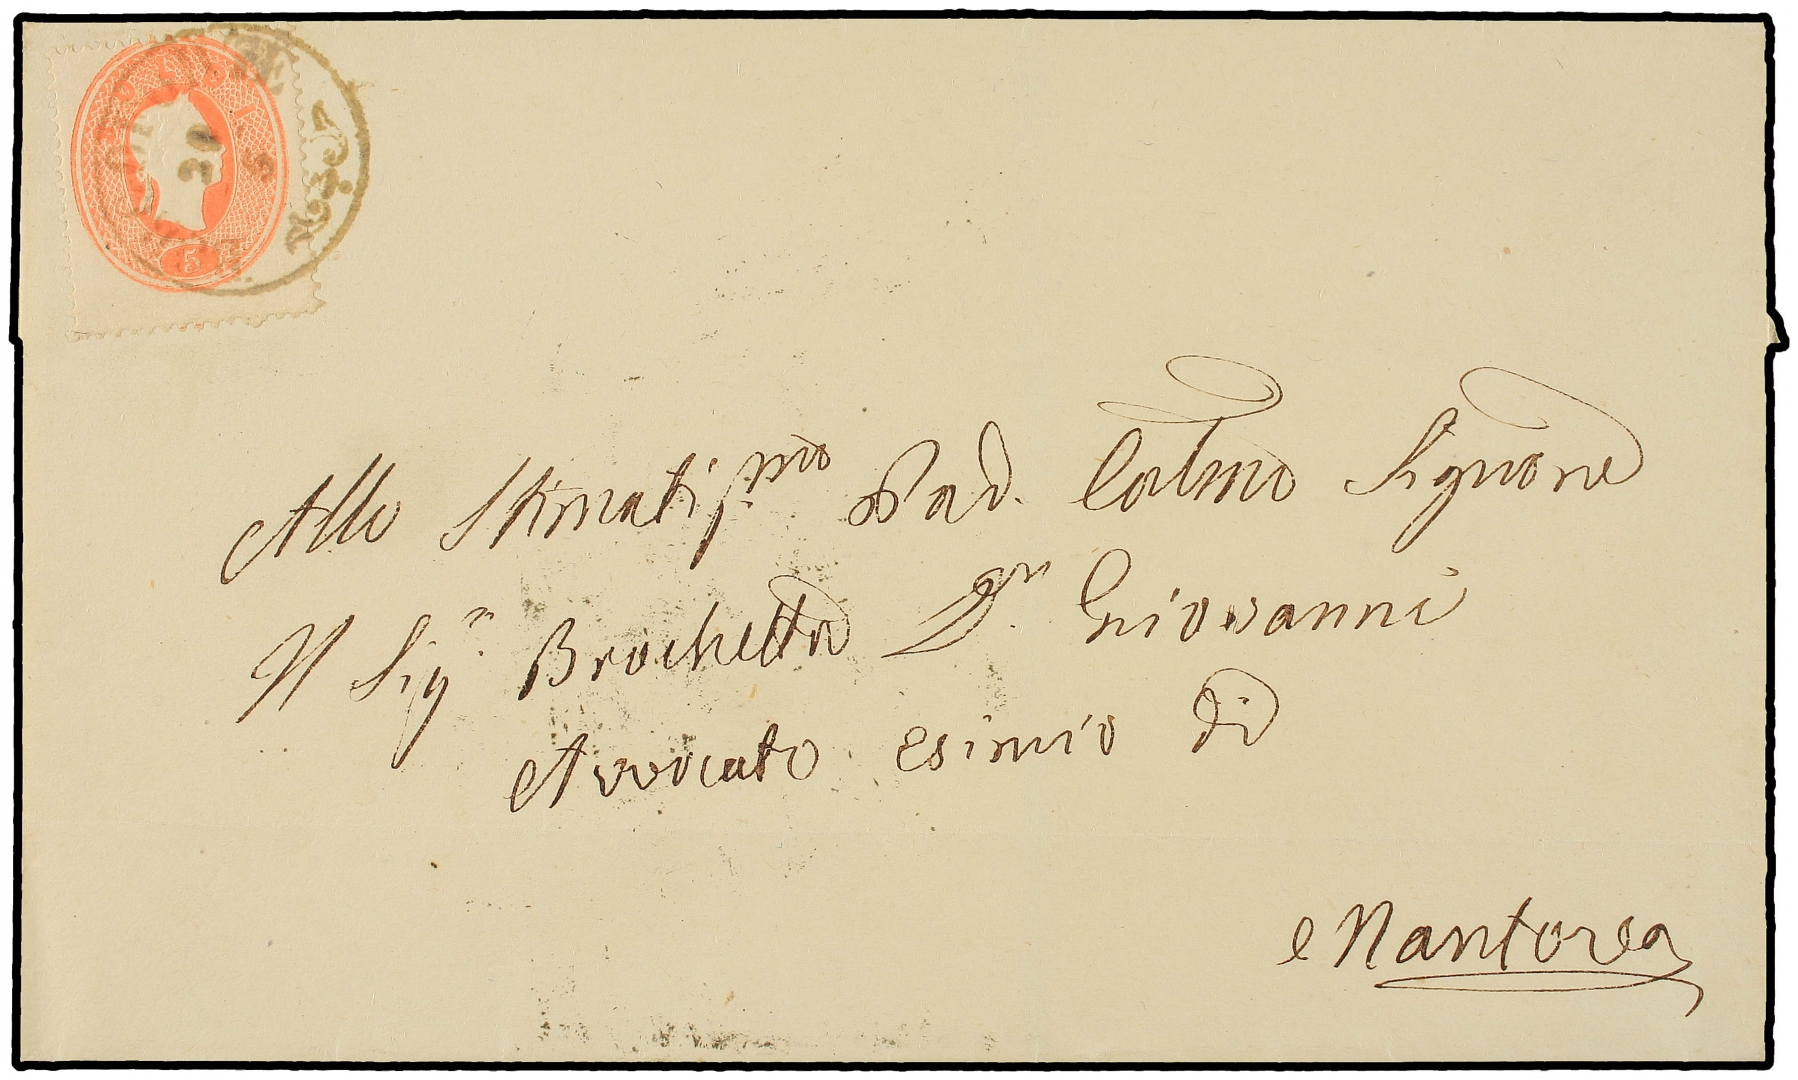 SOLDI
20
5
Magg.
5
Allo Stimatissmo Pad. Colmo Signore
Il Sigr Brochetta Dn Giovanni
Avvocato esimio di
Mantova